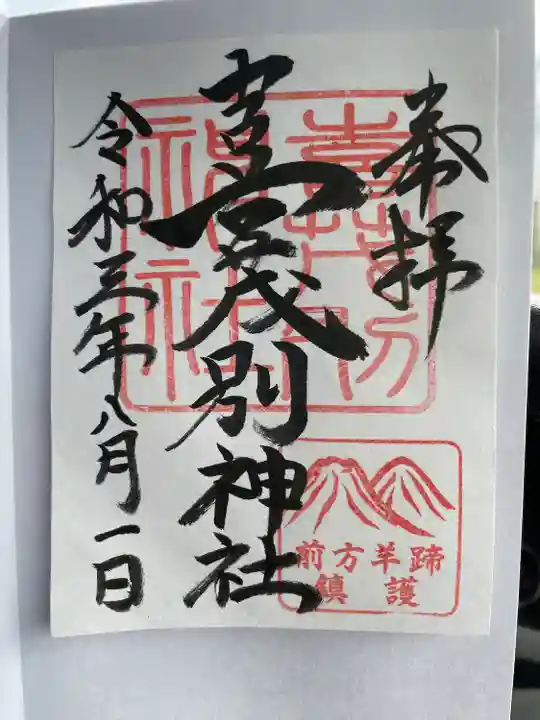 奉拝
喜茂別神社
令和三年八月一日
喜茂別
神社
前方羊蹄
鎮護